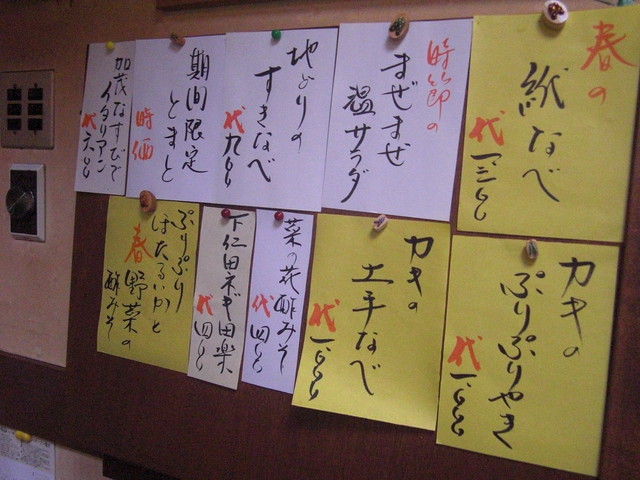 春の
紙なべ
代一、三〇〇
時節の
まぜまぜ
温サラダ
地どりの
すきなべ
代九〇〇
期間限定
とまと
時価
加茂なすびで
イタリアン
代六〇〇
カキの
ぷりぷりやき
代一、〇〇〇
カキの
土手なべ
代一、〇〇〇
菜の花酢みそ
代四〇〇
下仁田ネギ田楽
代四〇〇
ぷりぷり
ほたるいかと
春野菜の
酢みそ